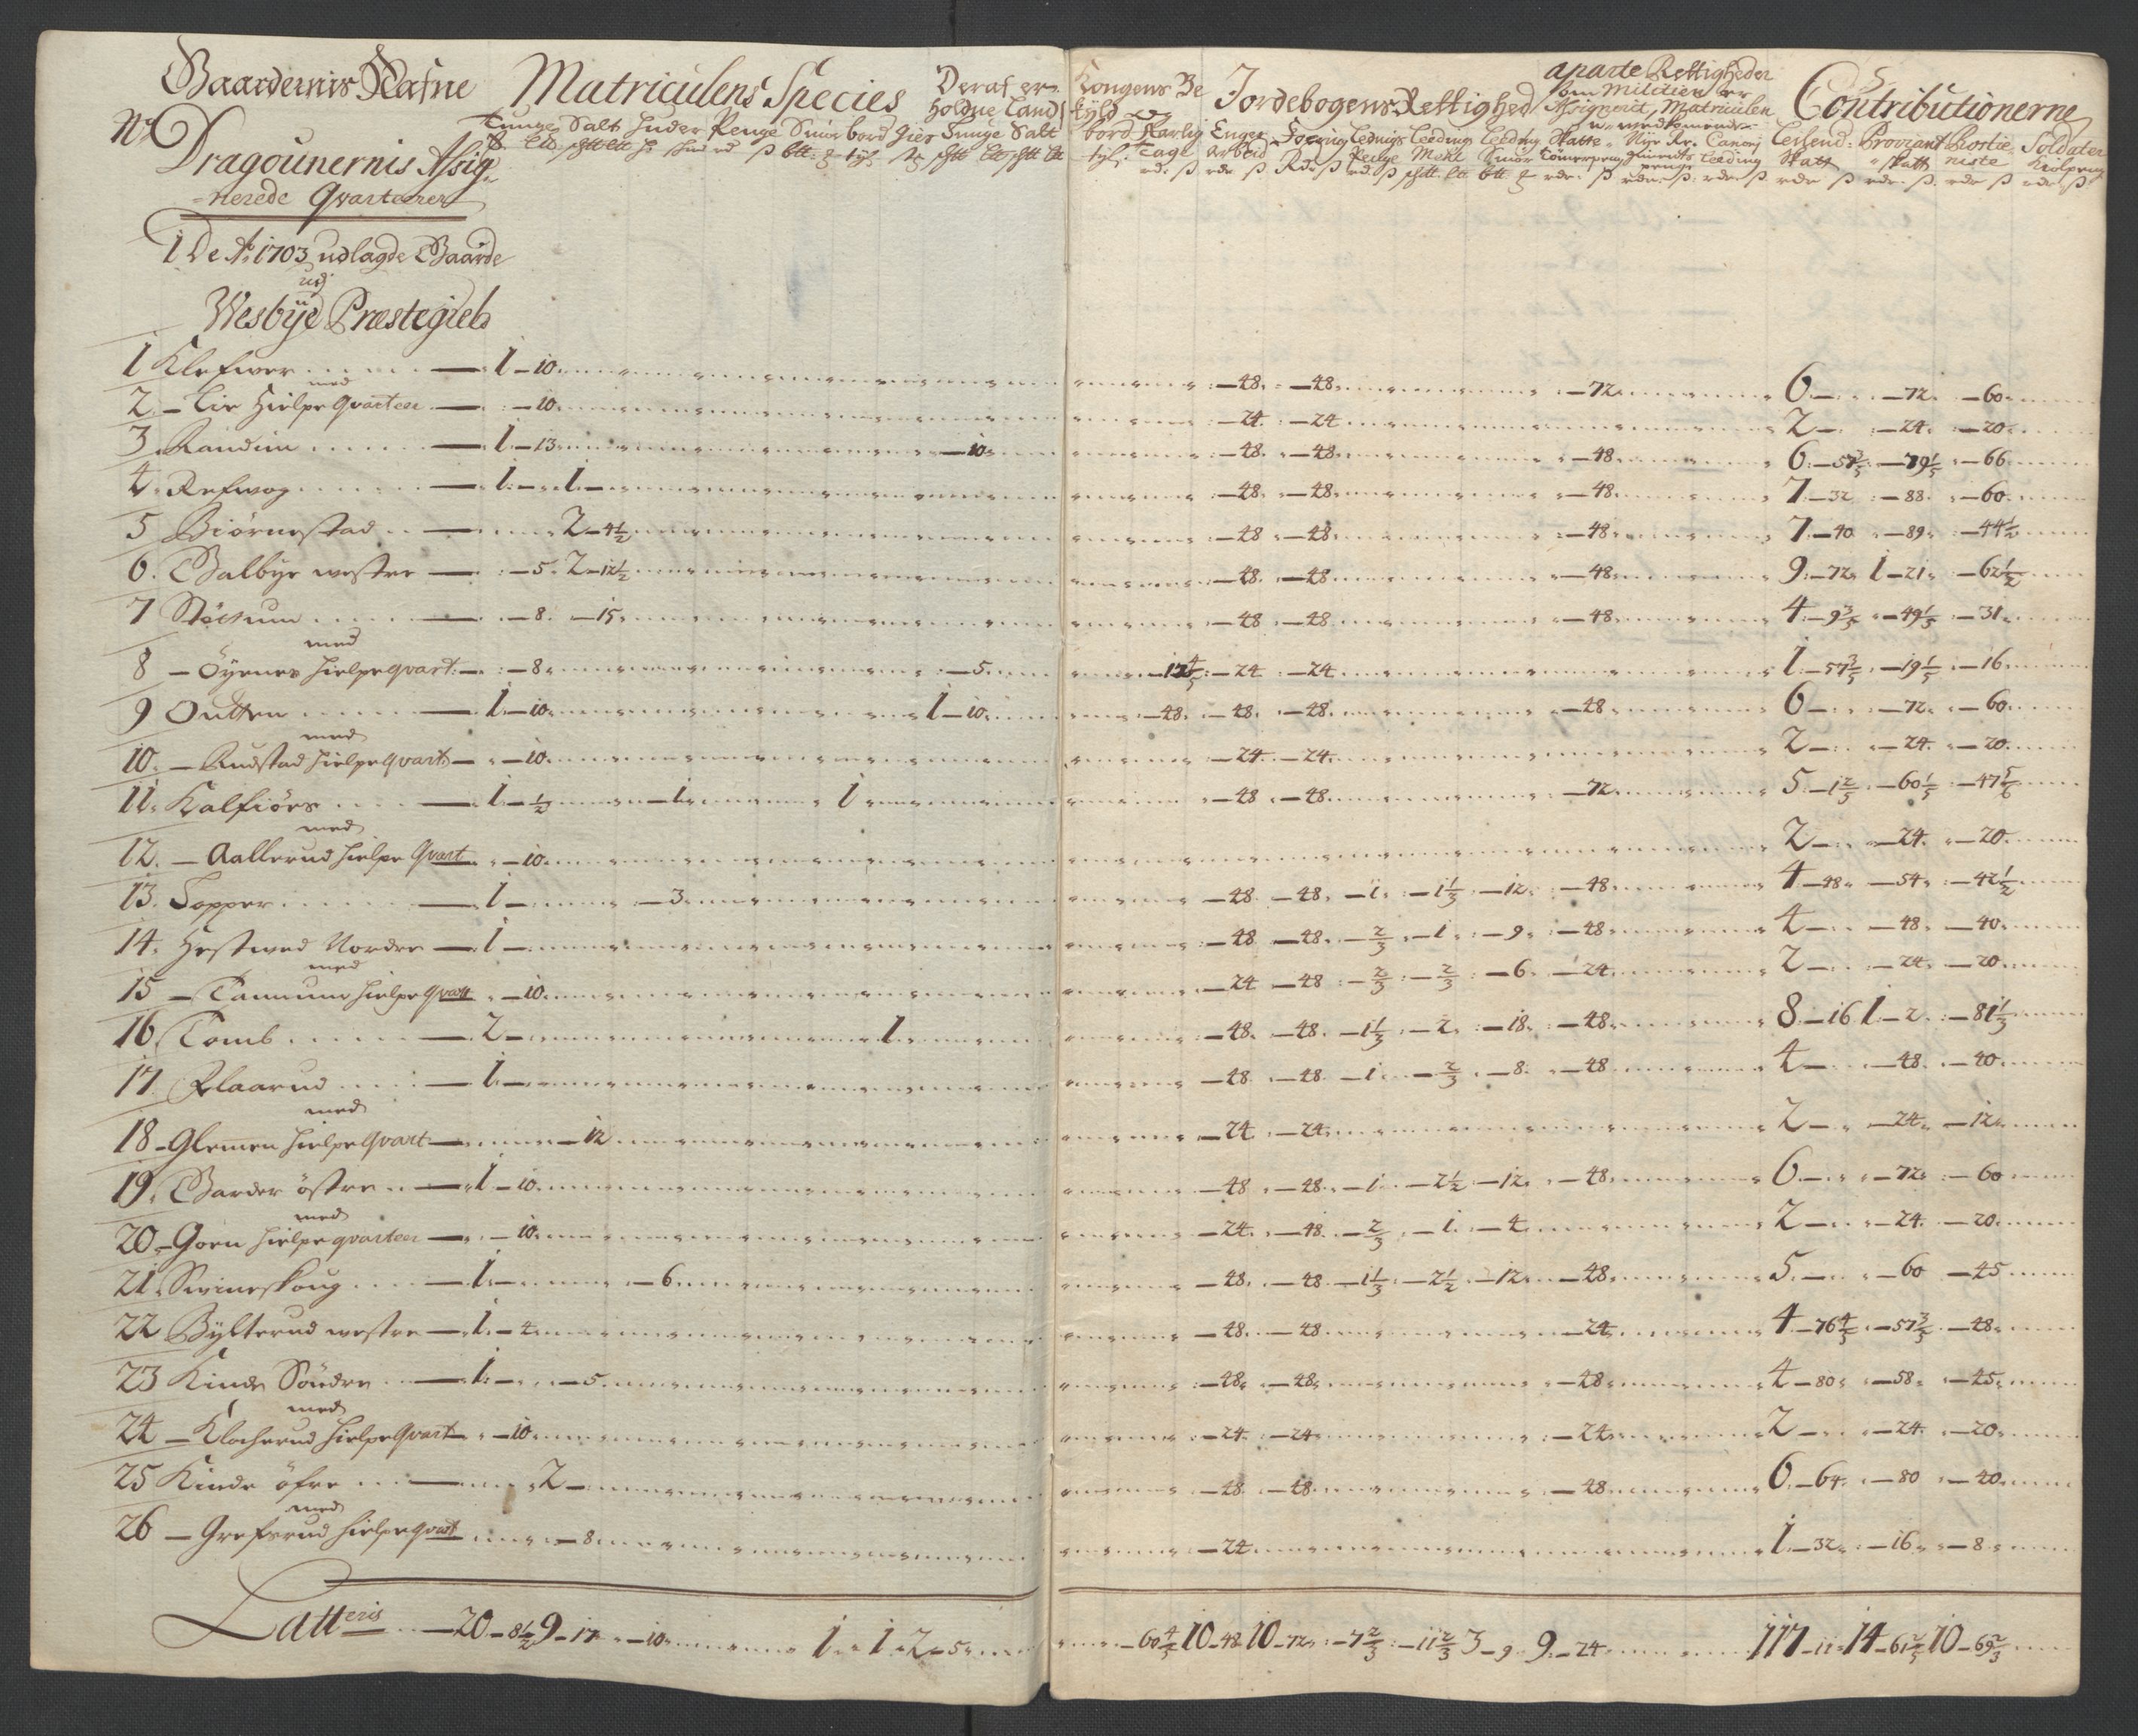 Gaardernis Nafne Matriculens Species Deraf er Kongens Be Jordebogens Rettighed aparte Rettigheder Contributionerne
No
Dragounernis Assig
nerede Qvarteerer
I De Ao 1703 udlagde Gaarde
udj
Wesbÿe Præstegield
1 Klefwer — 1 — 10 — 48 — 48 — 72 6 — — 72 — 60
med
2 — Lie Hielpe Qvarteer — — 10 — 24 — 24 2 — — 24 — 20
3 Randim — 1 — 13 — 10 — 48 — 48 — 48 6 — 57 3/5 — 79 1/5 — 66
4 Refwog — 1 — 1 — — 48 — 48 — 48 7 — 32 — 88 — 60
5 Biörnestad — 2 — 4 1/2 — 48 — 48 — 48 7 — 40 — 89 — 44 1/2
6 Dalbÿe westre — — 5 2 — 12 1/2 — 48 — 48 — 48 9 — 72 1 — 21 — 62 1/2
7 Støttum — — 8 — 15 — 48 — 48 — 48 4 — 9 3/5 — 49 1/5 — 31
med
8 — Öyenes hielpe qvart: — — 8 — 5 — 12 4/5 — 24 — 24 1 — 57 3/5 — 19 1/5 — 16
9 Outten — 1 — 10 1 — 10 — 48 — 48 — 48 — 48 6 — — 72 — 60
med
10 — Rudstad hielpe qvart — — 10 — 24 — 24 2 — — 24 — 20
11 Kalfiörs — 1 — 1/2 — 1 1 — 48 — 48 — 72 5 — 1 2/5 — 60 1/5 — 47 5/6
med
12 — Aallerud hielpe Qvart — 10 2 — — 24 — 20
13 Sopper — 1 — — 3 — 48 — 48 — 1 — 1 1/3 — 12 — 48 4 — 48 — 54 — 42 1/2
14 Hestwed Nordre — 1 — — 48 — 48 — 2/3 — 1 — 9 — 48 4 — — 48 — 40
med
15 — Tamum hielpe qvart — 10 — 24 — 48 — 2/3 — 2/3 — 6 — 24 2 — — 24 — 20
16 Tomb — 2 — 1 — 48 — 48 — 1 1/3 — 2 — 18 — 48 8 — 16 1 — 2 — 81 1/3
17 Flaarud — 1 — — 48 — 48 — 1 — 2/3 — 8 — 48 4 — — 48 — 40
med
18 — Glemen hielpe qvart — — 12 — 24 — 24 2 — — 24 — 12
19 Garder östre — 1 — 10 — 48 — 48 — 1 — 2 1/2 — 12 — 48 6 — — 72 — 60
med
20 — Goen hielpe qvarteer — — 10 — 24 — 48 — 2/3 — 1 — 4 2 — — 24 — 20
21 Swineskoug — 1 — — 6 — 48 — 48 — 1 1/3 — 2 1/2 — 12 — 48 5 — — 60 — 45
22 Bÿlterud westre — 1 — 4 — 48 — 48 — 24 4 — 76 4/5 — 57 3/5 — 48
23 Kinde Söndre — 1 — — 5 — 48 — 48 — 48 4 — 80 — 58 — 45
med
24 — Klocherud hielpe Qvart — — 10 — 24 — 24 — 24 2 — — 24 — 20
25 Kinde öfre — 2 — — 48 — 48 — 48 6 — 64 — 80 — 40
med
26 — Grefsrud hielpe qvart — 8 — 24 1 — 32 — 16 — 8
Latteris — 20 — 8 1/2 9 — 17 — 10 1 1 2 — 5 — 60 4/5 10 — 48 10 — 72 — 7 2/3 — 11 2/3 3 — 9 9 — 24 117 — 11 14 — 61 2/5 10 — 69 2/3